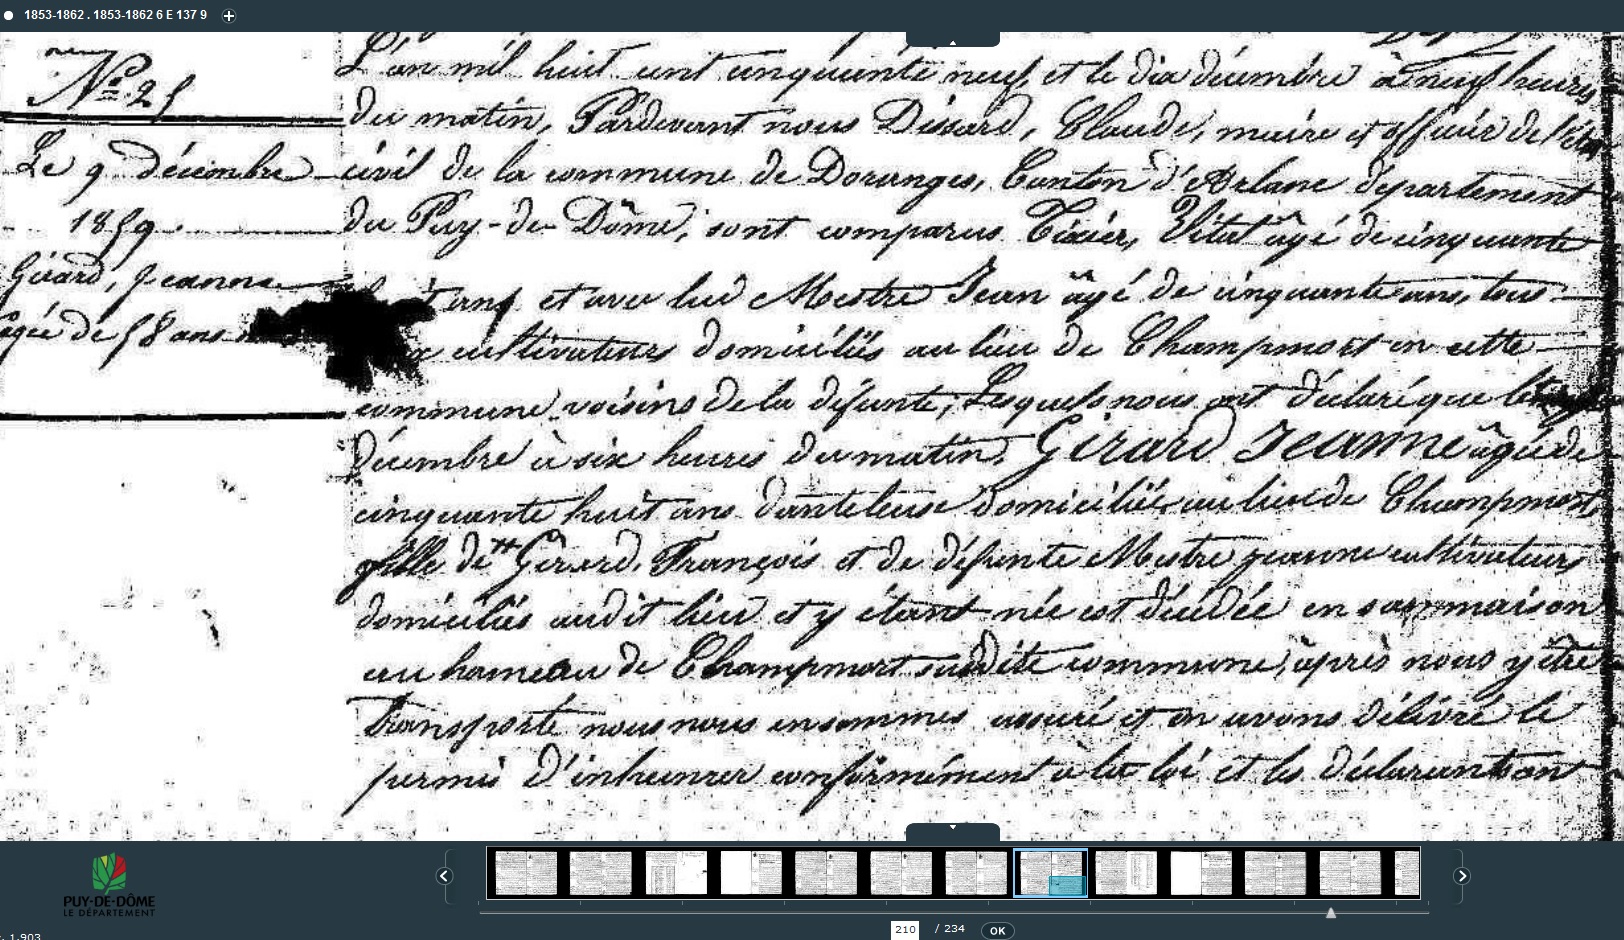 1853-1862 . 1853-1862 6 E 137 9
N° 25
Le 9 décembre
1859
Girard, Jeanne
agée de 58 ans
L'an mil huit cent cinquante neuf et le dix décembre à neuf heures
du matin, Pardevant nous Dissard, Claude, maire et officier de l'état
civil de la commune de Doranges, Canton d'Arlanc département
du Puy-de-Dôme, sont comparus Tixier, Vital âgé de cinquante
ans et avec lui Mestre Jean âgé de cinquante ans, tous
cultivateurs domiciliés au lieu de Champmort en cette
commune, voisins de la défunte; Lesquels nous ont déclaré que le
décembre à six heures du matin, Girard Jeanne âgée de
cinquante huit ans danteleuse domiciliée au lieu de Champmort,
fille de Girard, François et de défunte Mestre jeanne cultivateurs
domiciliés audit lieu et y étant née est décédée en sa maison
au hameau de Champmort susdite commune, après nous y être
transporté nous nous en sommes assuré et en avons délivré le
permis D'inhumer conformément à la loi et les déclarants ont
PUY-DE-DÔME
LE DÉPARTEMENT
210 / 234 OK
1,903